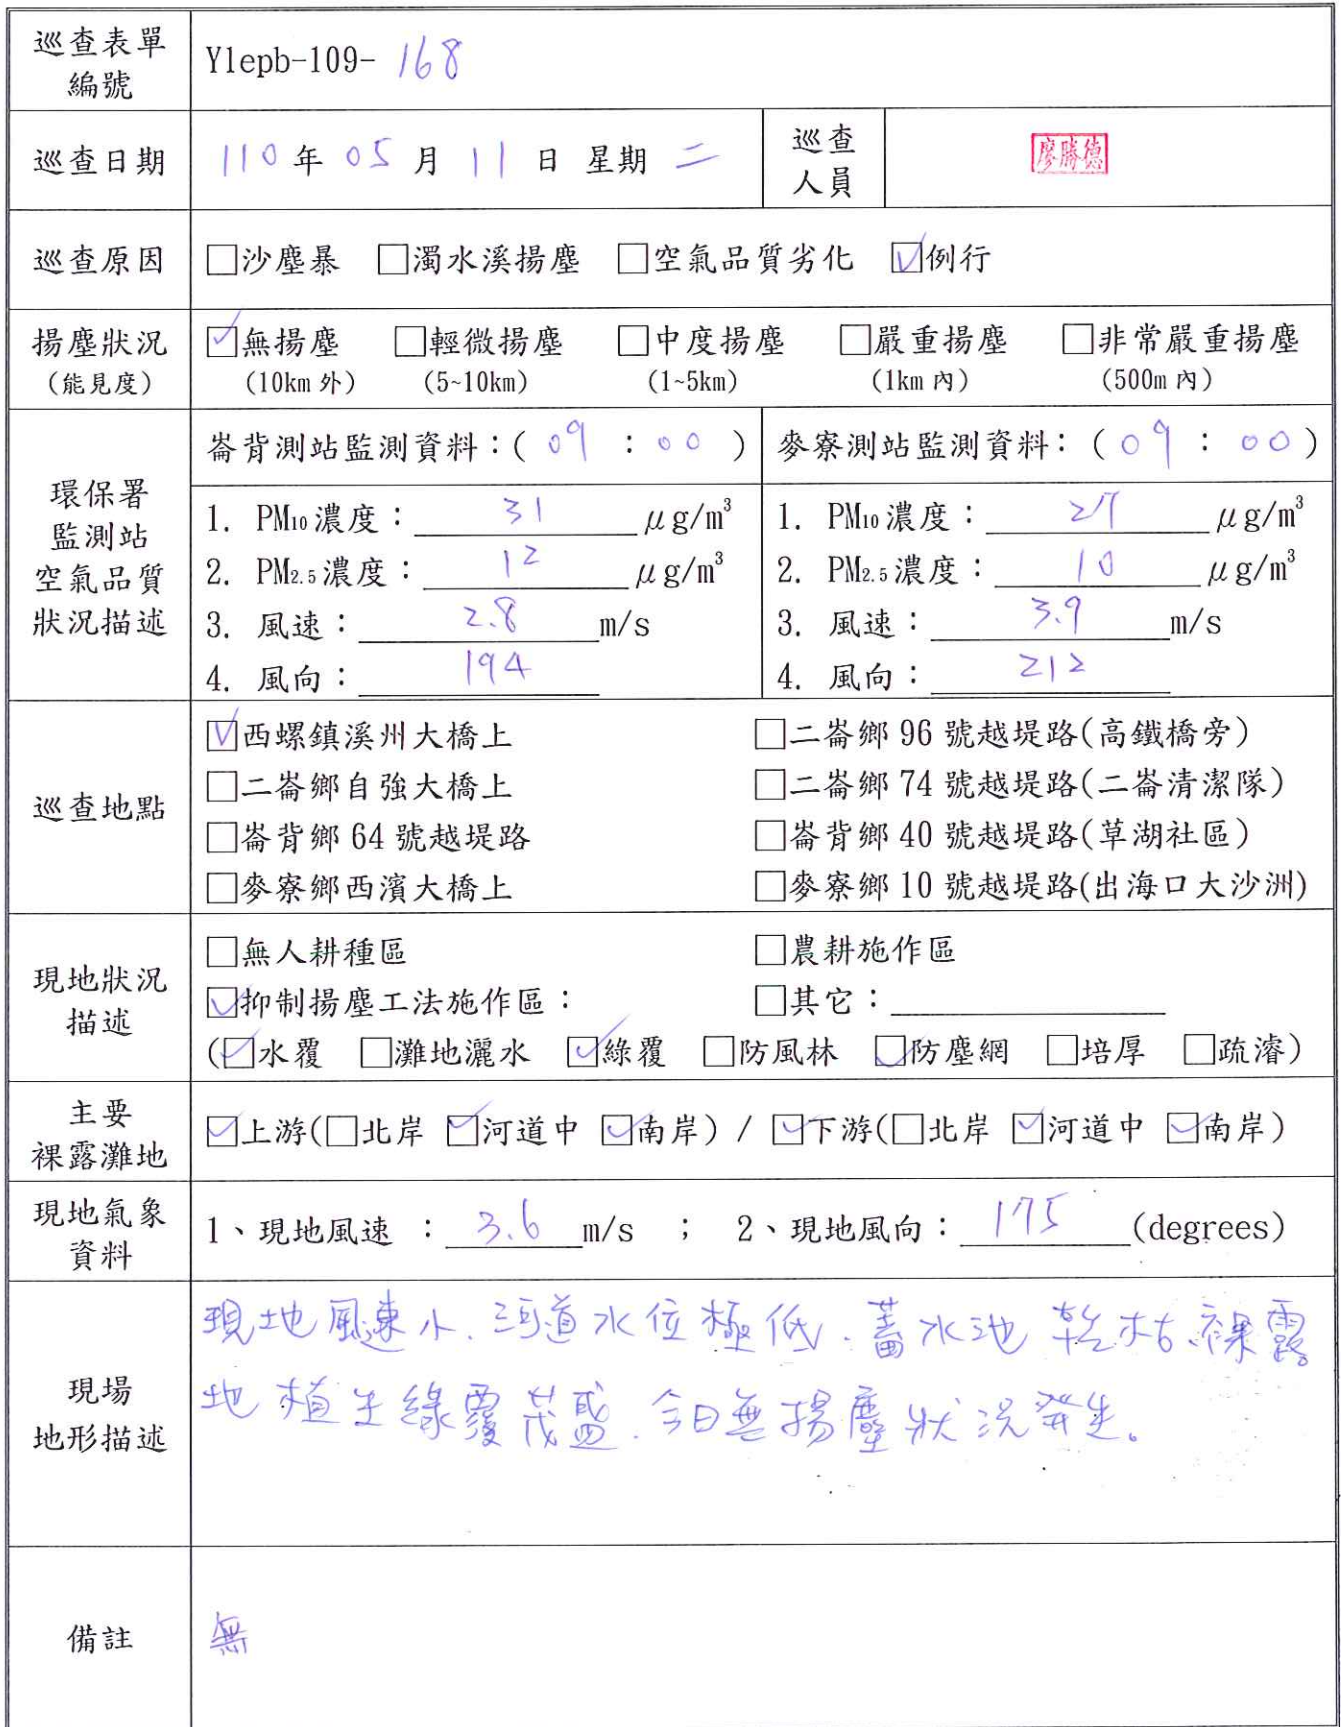 巡查表單編號 Ylepb-109- 168
巡查日期 110年 05月 11日 星期 二 巡查人員 廖勝德
巡查原因 □沙塵暴 □濁水溪揚塵 □空氣品質劣化 ☑例行
揚塵狀況 ☑無揚塵 □輕微揚塵 □中度揚塵 □嚴重揚塵 □非常嚴重揚塵
(能見度) (10km 外) (5~10km) (1~5km) (1km 內) (500m 內)
環保署
監測站
空氣品質
狀況描述
崙背測站監測資料：( 09 : 00 )
1. PM10濃度： 31 μg/m³
2. PM2.5濃度： 12 μg/m³
3. 風速： 2.8 m/s
4. 風向： 194
麥寮測站監測資料：( 09 : 00 )
1. PM10濃度： 27 μg/m³
2. PM2.5濃度： 10 μg/m³
3. 風速： 3.9 m/s
4. 風向： 212
巡查地點
☑西螺鎮溪州大橋上 □二崙鄉 96 號越堤路(高鐵橋旁)
□二崙鄉自強大橋上 □二崙鄉 74 號越堤路(二崙清潔隊)
□崙背鄉 64 號越堤路 □崙背鄉 40 號越堤路(草湖社區)
□麥寮鄉西濱大橋上 □麥寮鄉 10 號越堤路(出海口大沙洲)
現地狀況
描述
□無人耕種區 □農耕施作區
☑抑制揚塵工法施作區： □其它：
(☑水覆 □灘地灑水 ☑綠覆 □防風林 ☑防塵網 □培厚 □疏濬)
主要
裸露灘地
☑上游(□北岸 ☑河道中 ☑南岸) / ☑下游(□北岸 ☑河道中 ☑南岸)
現地氣象
資料
1、現地風速 ： 3.6 m/s ； 2、現地風向： 175 (degrees)
現場
地形描述
現地風速小、河道水位極低、蓄水池乾枯、裸露
地植生綠覆茂盛、今日無揚塵狀況發生。
備註 無